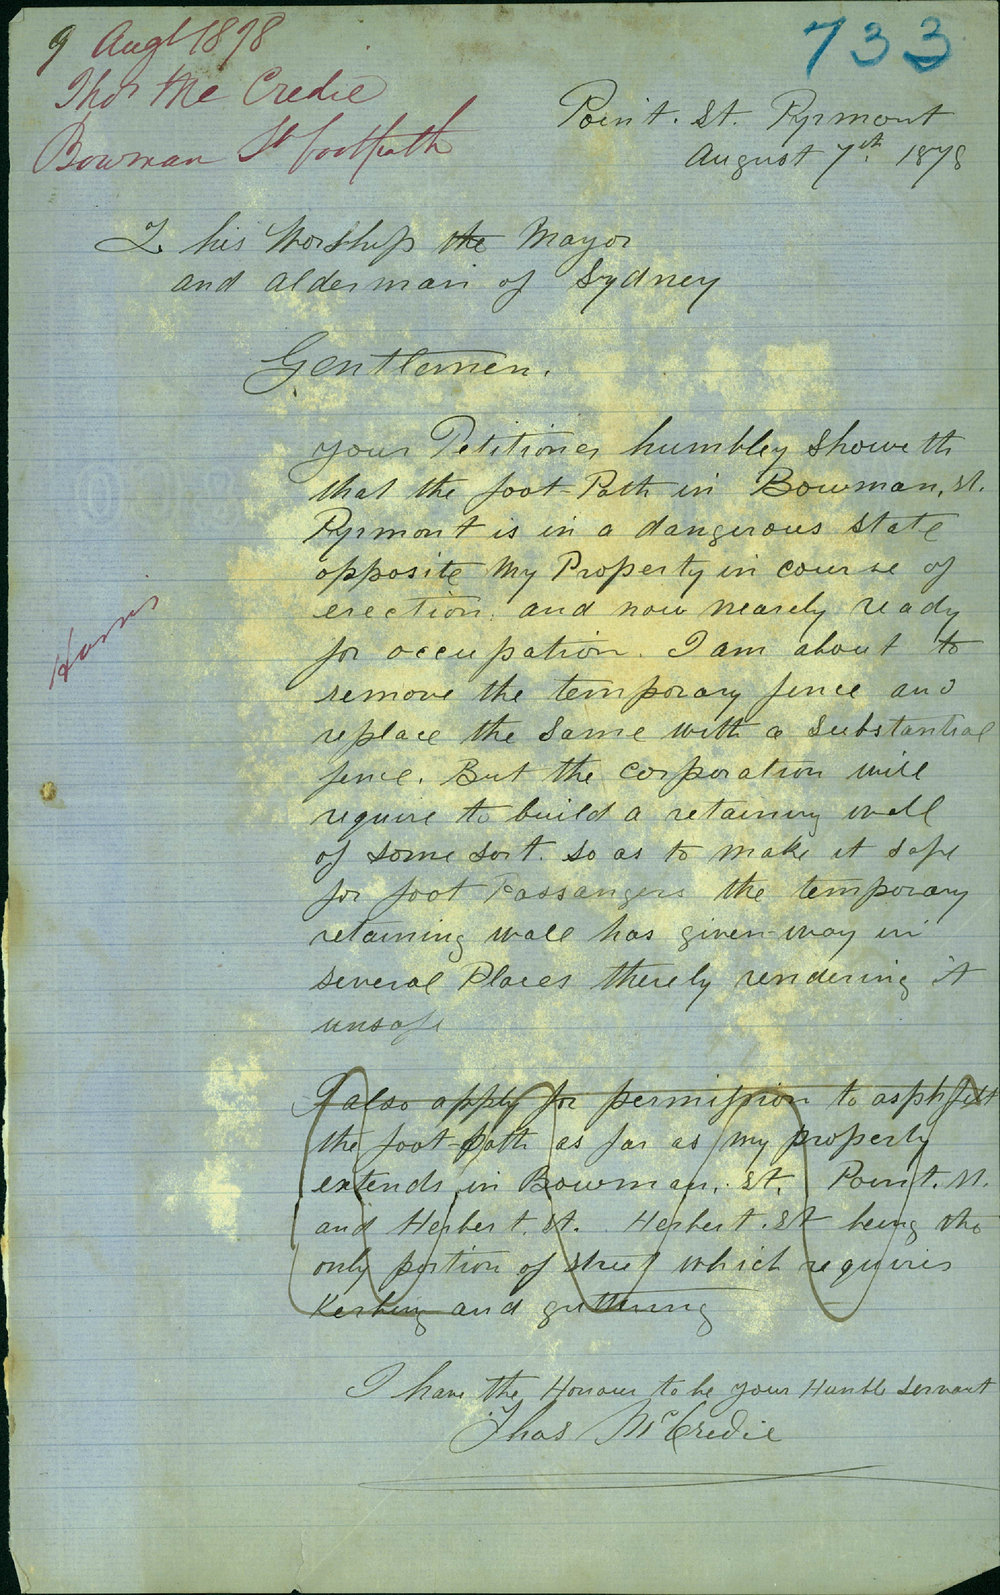 733
9 Augt 1878
Thos Mc Credie
Bowman St footpath
Point. St. Pyrmont
August 7th. 1878
To his Worship the Mayor
and aldermain of Sydney
Gentlemen.
your Petitioner humbley Showeth
that the foot-Path in Bowman, st.
Pyrmont is in a dangerous state
opposite My Property in course of
erection. and now nearely ready
for occupation. I am about to
remove the temporary fence and
replace the same with a Substantial
fence. But the corporation will
require to build a retaining wall
of some sort. so as to make it safe
for foot Passangers the temporary
retaining wall has given-way in
several Places therely rendering it
unsafe
I also apply for permission to asphfelt
the foot-path as far as my property
extends in Bowman,. St. Point. St.
and Herbert. St. Herbert. St being the
only portion of street which requires
Kerbing and guttering
I have the Honour to be your Humble servant
Thos McCredie